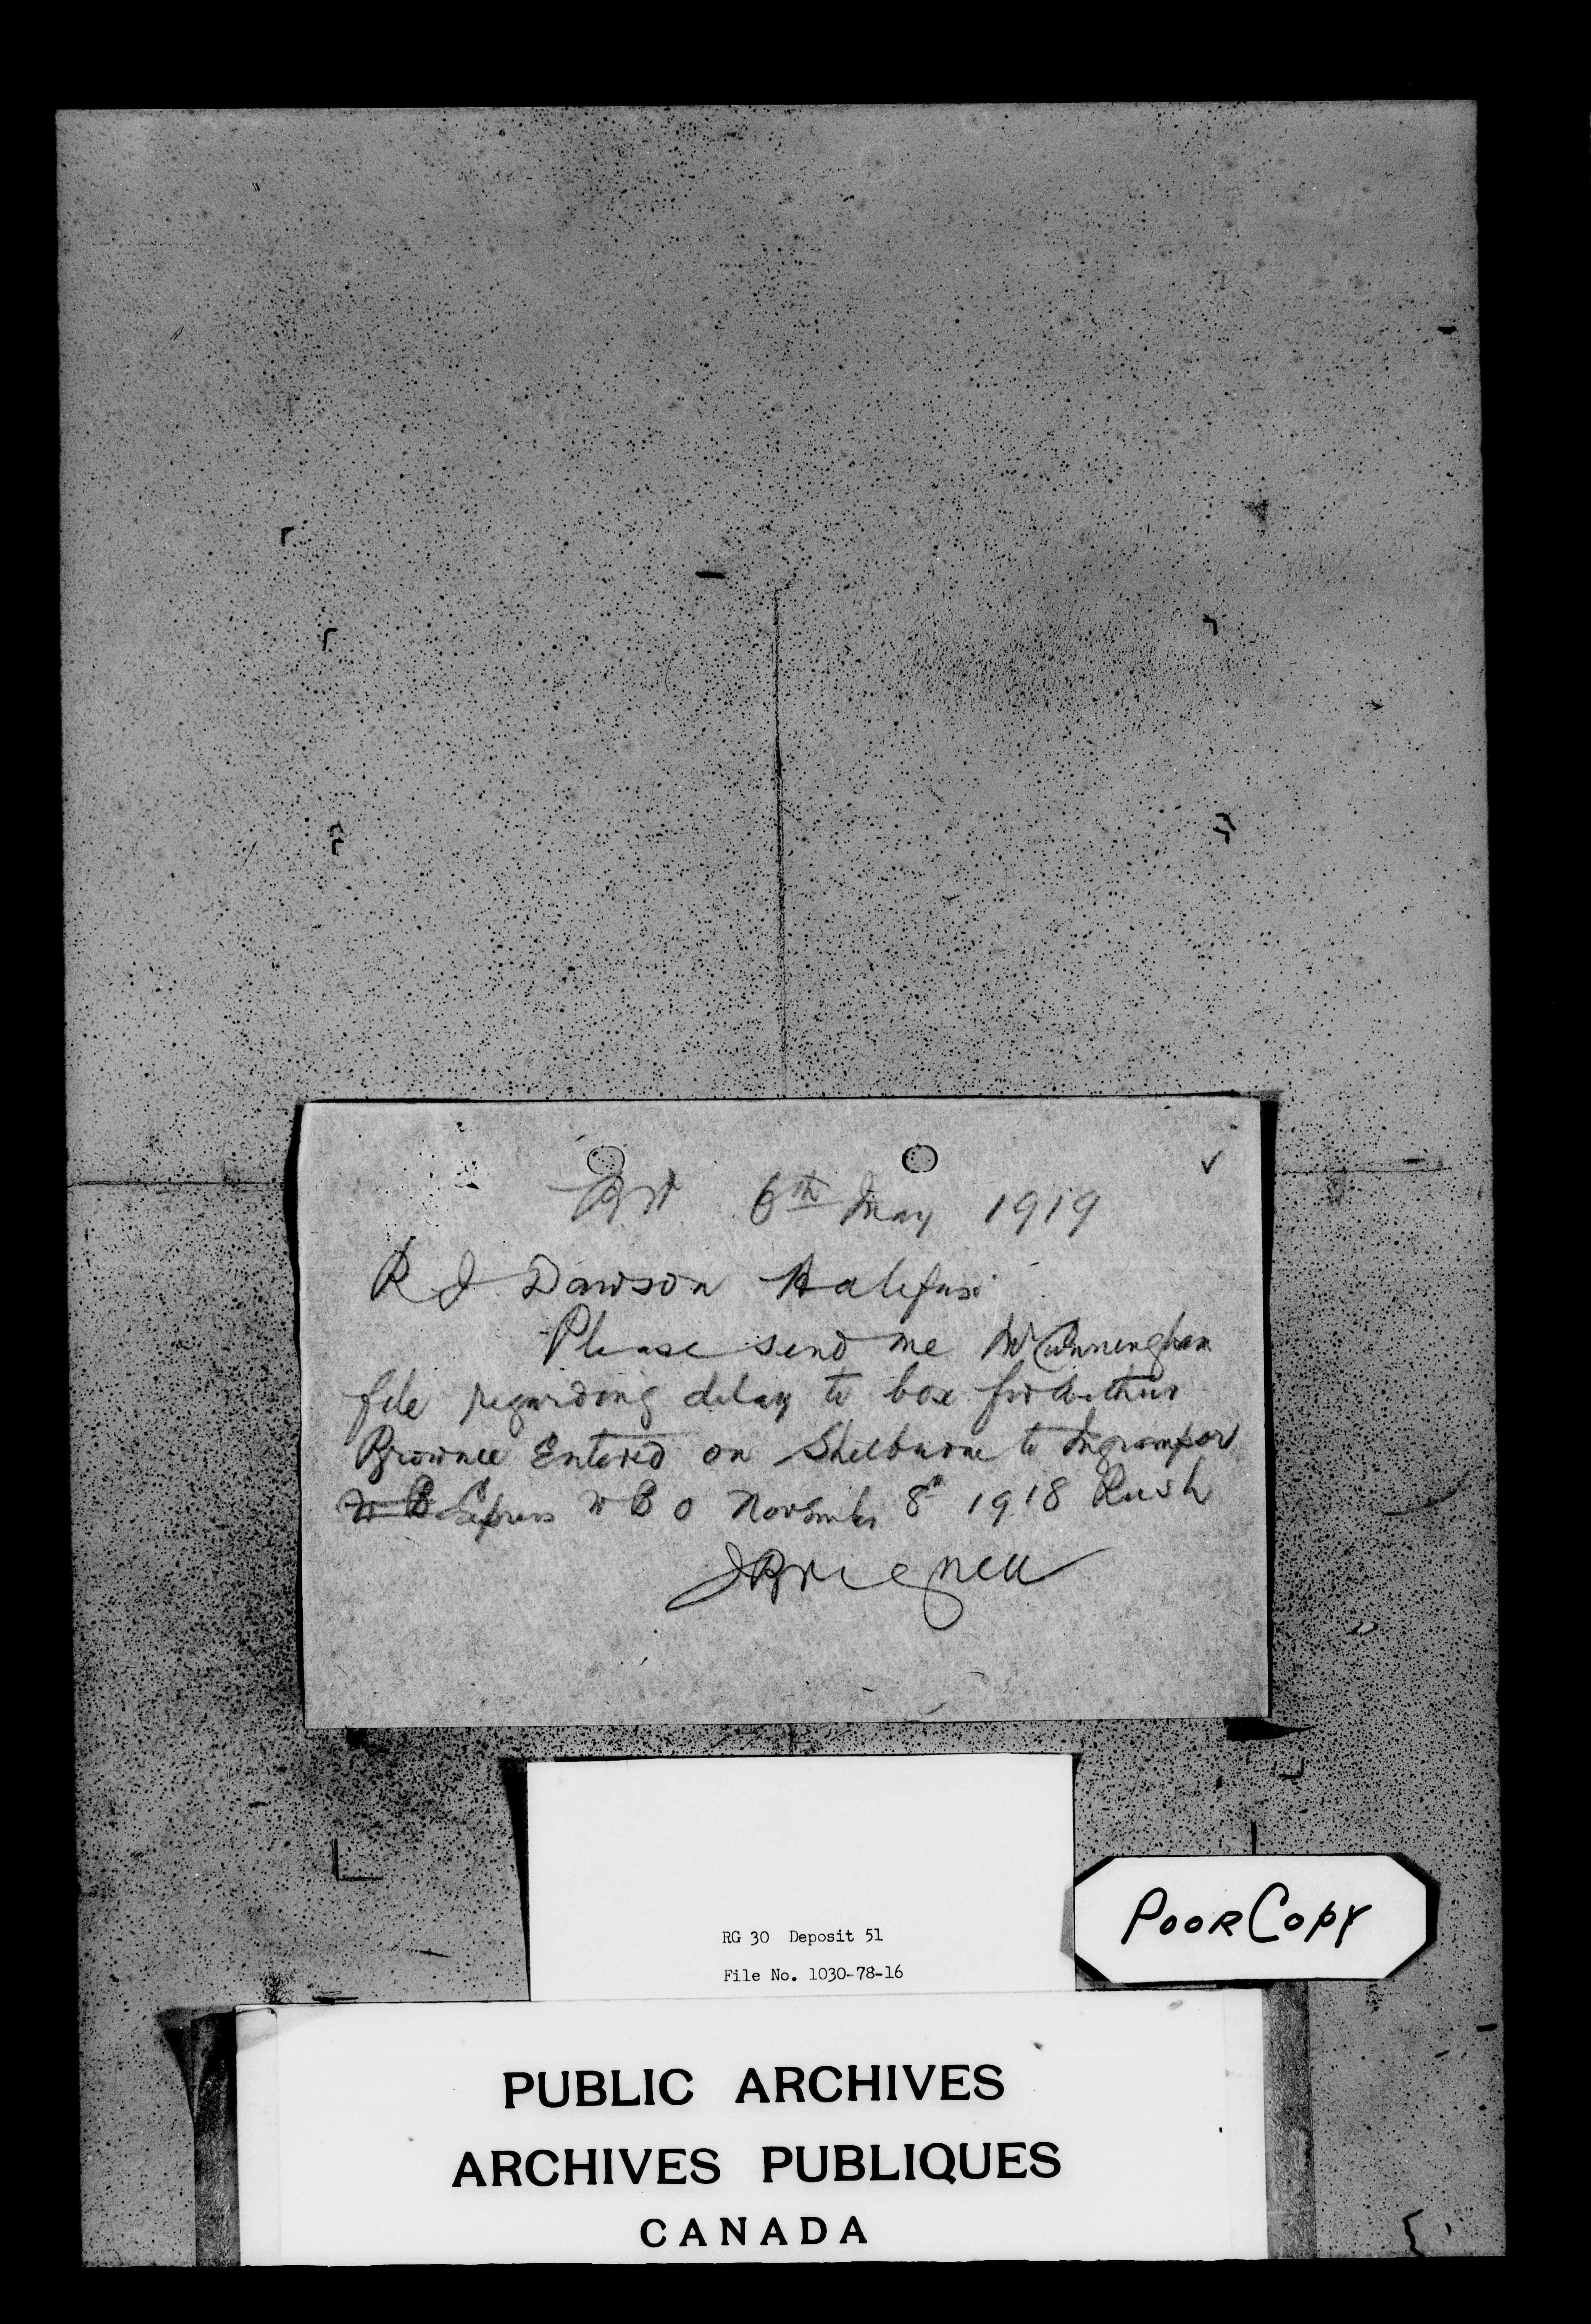 6th May 1919
R J Dawson Halifax
Please send me Mr Cunningham
file regarding delay to box for Arthur
Brownell Entered on Shelburne to Ingramport
W B Express W B 0 November 8th 1918 Rush
RG 30 Deposit 51
File No. 1030-78-16
POOR COPY
PUBLIC ARCHIVES
ARCHIVES PUBLIQUES
CANADA